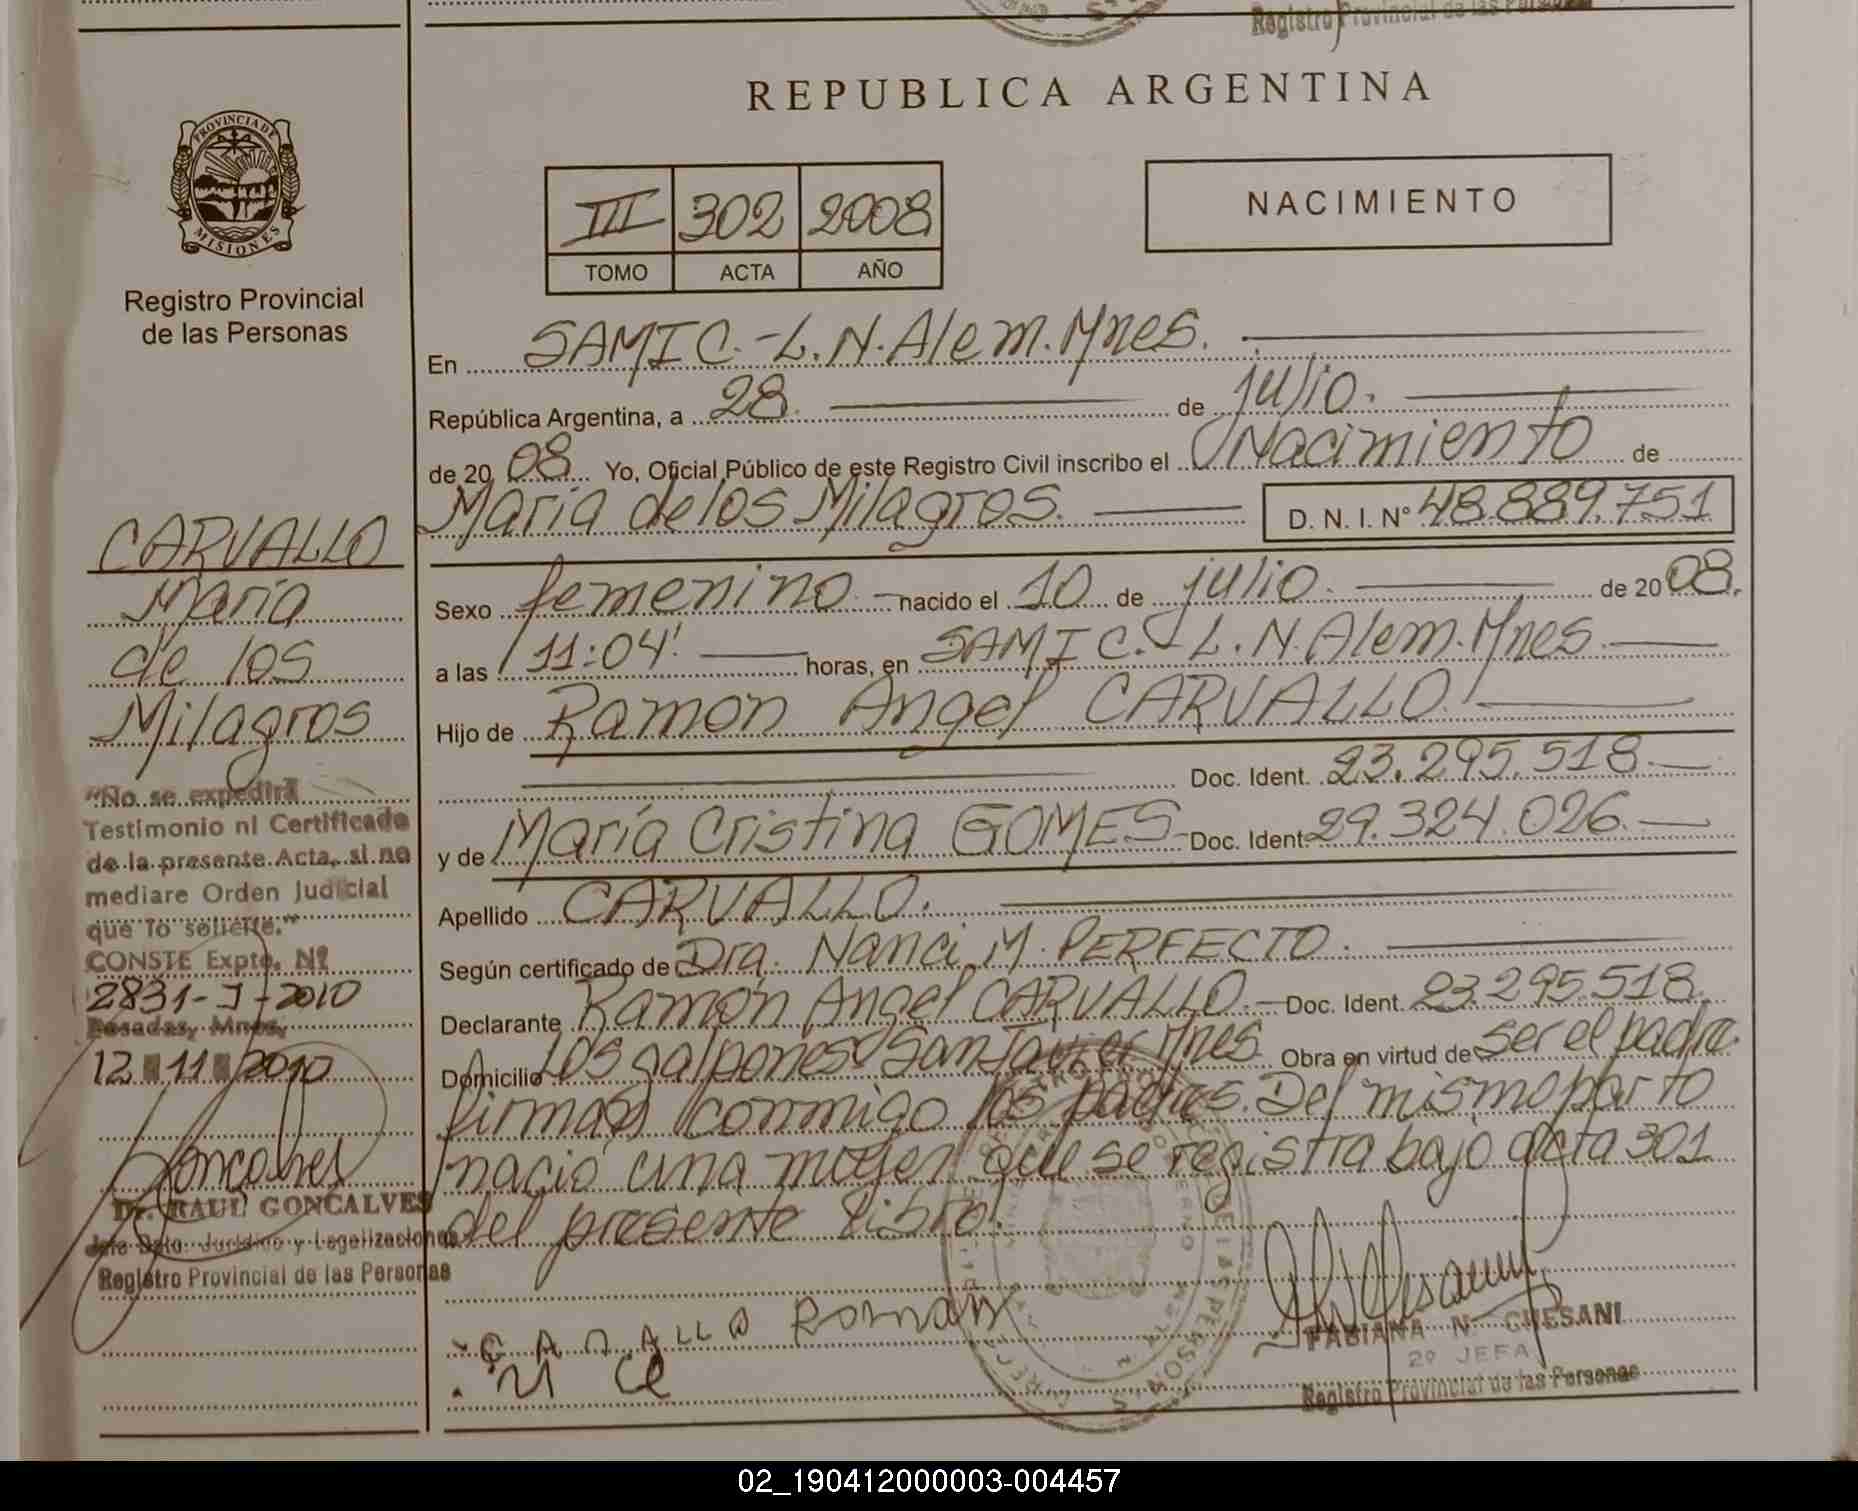 Registro Provincial de las Personas
PROVINCIA DE
MISIONES
Registro Provincial
de las Personas
CARVALLO
María
de los
Milagros
"No se expedirá
Testimonio ni Certificado
de la presente Acta, si no
mediare Orden Judicial
que lo solicite."
CONSTE Expte. Nº
2831-J-2010
Posadas, Mnes,
12 11 2010
Dr. RAUL GONCALVES
Jefe Dpto. Jurídico y Legalizaciones
Registro Provincial de las Personas
REPUBLICA ARGENTINA
III 302 2008
TOMO ACTA AÑO
NACIMIENTO
En SAMIC.-L.N.Alem.Mnes.
República Argentina, a 28. de julio.
de 20 08 Yo, Oficial Público de este Registro Civil inscribo el Nacimiento de
María de los Milagros. D. N. I. Nº 48.889.751
Sexo femenino.- nacido el 10 de julio. de 20 08.
a las 11:04' horas, en SAMIC.-L.N.Alem.Mnes.
Hijo de Ramon Angel CARVALLO.
Doc. Ident. 23.295.518.
y de María Cristina GOMES Doc. Ident. 29.324.026.
Apellido CARVALLO.
Según certificado de Dra. Nanci M. PERFECTO.
Declarante Ramón Angel CARVALLO. Doc. Ident. 23.295.518.
Domicilio Los Galpones San Javier Mnes Obra en virtud de ser el padre.
firman conmigo los padres. Del mismo parto
nació una mujer que se registra bajo acta 301
del presente Libro.
FABIANA N. CHESANI
2º JEFA
Registro Provincial de las Personas
02_190412000003-004457